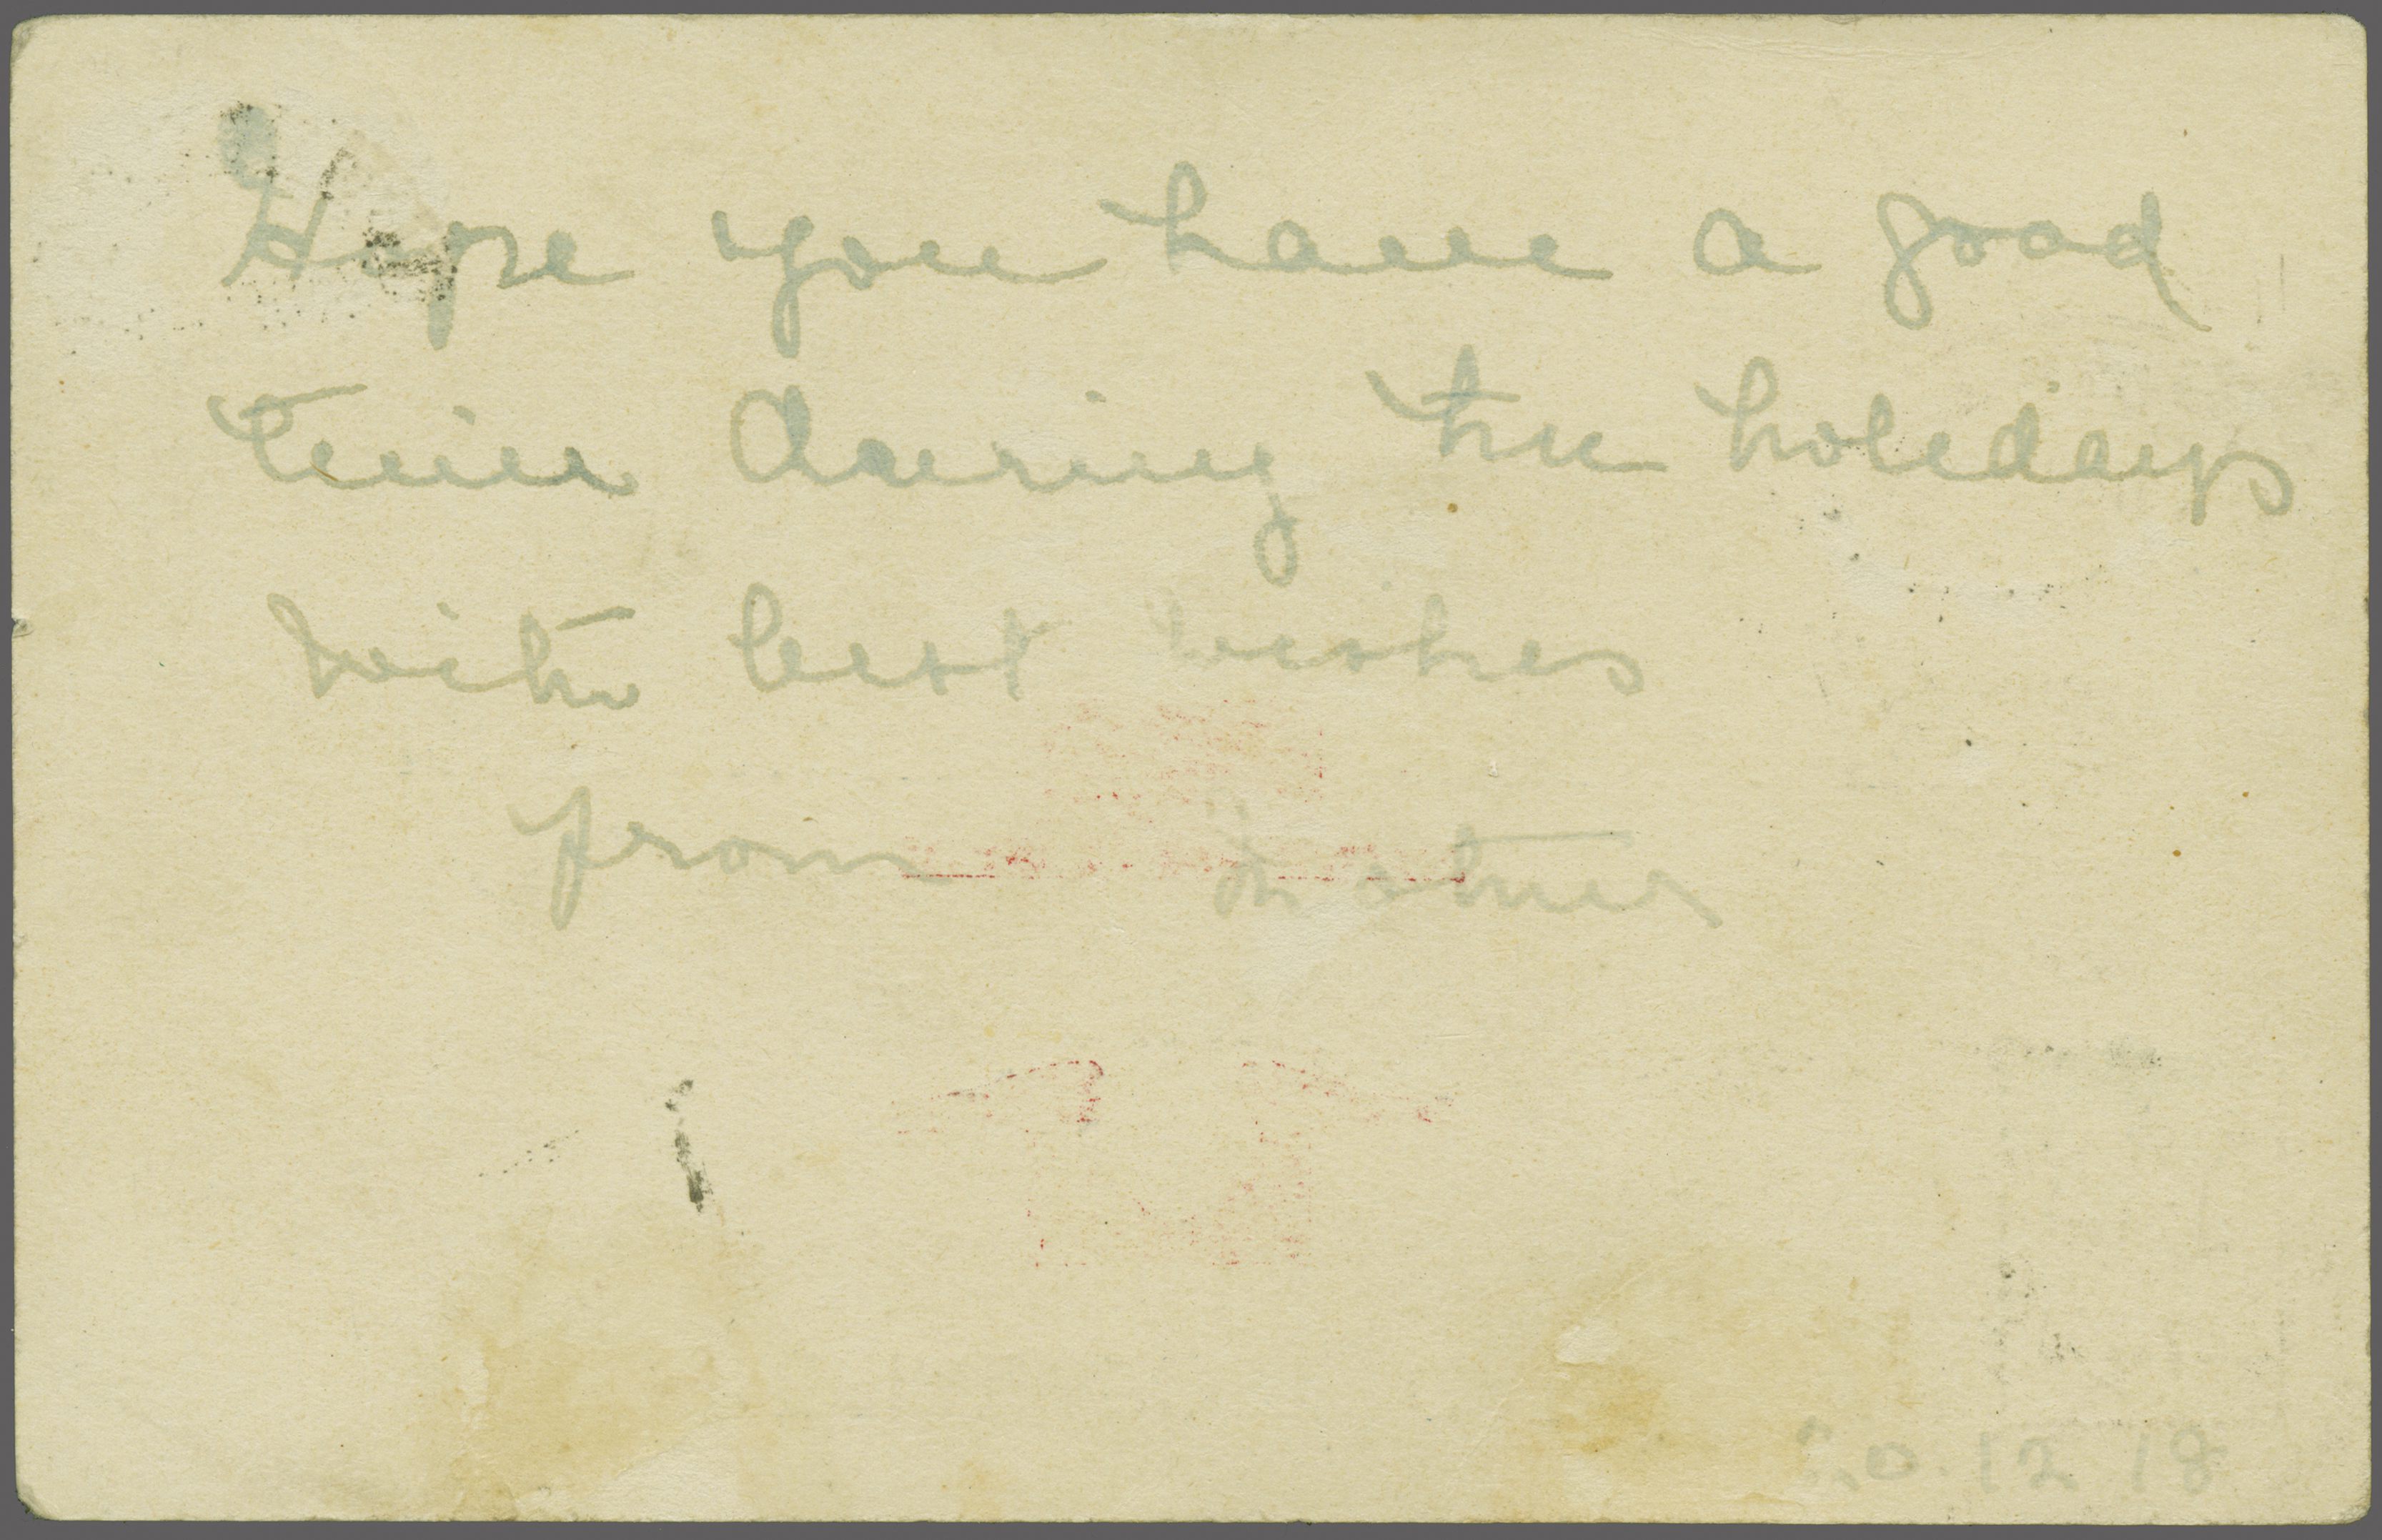 Hope you have a good
time during the holidays
with best wishes
from Mother
20.12 18